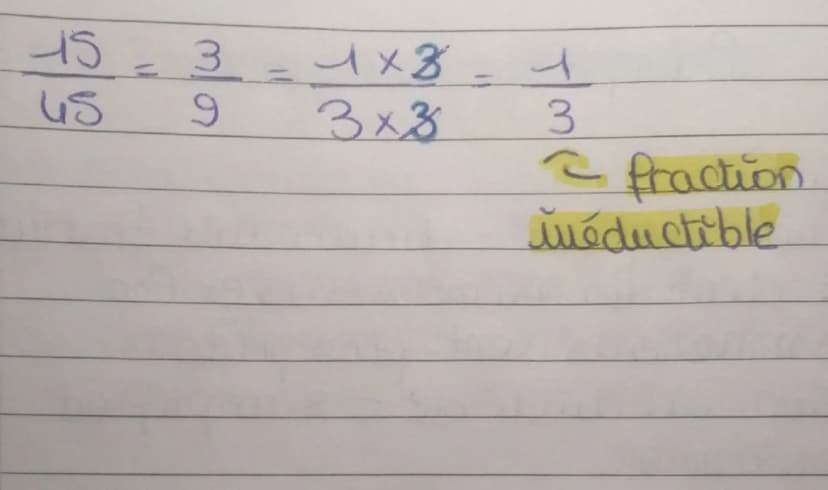 15/45 = 3/9 = 1 x 3/3 x 3 = 1/3
fraction
irréductible